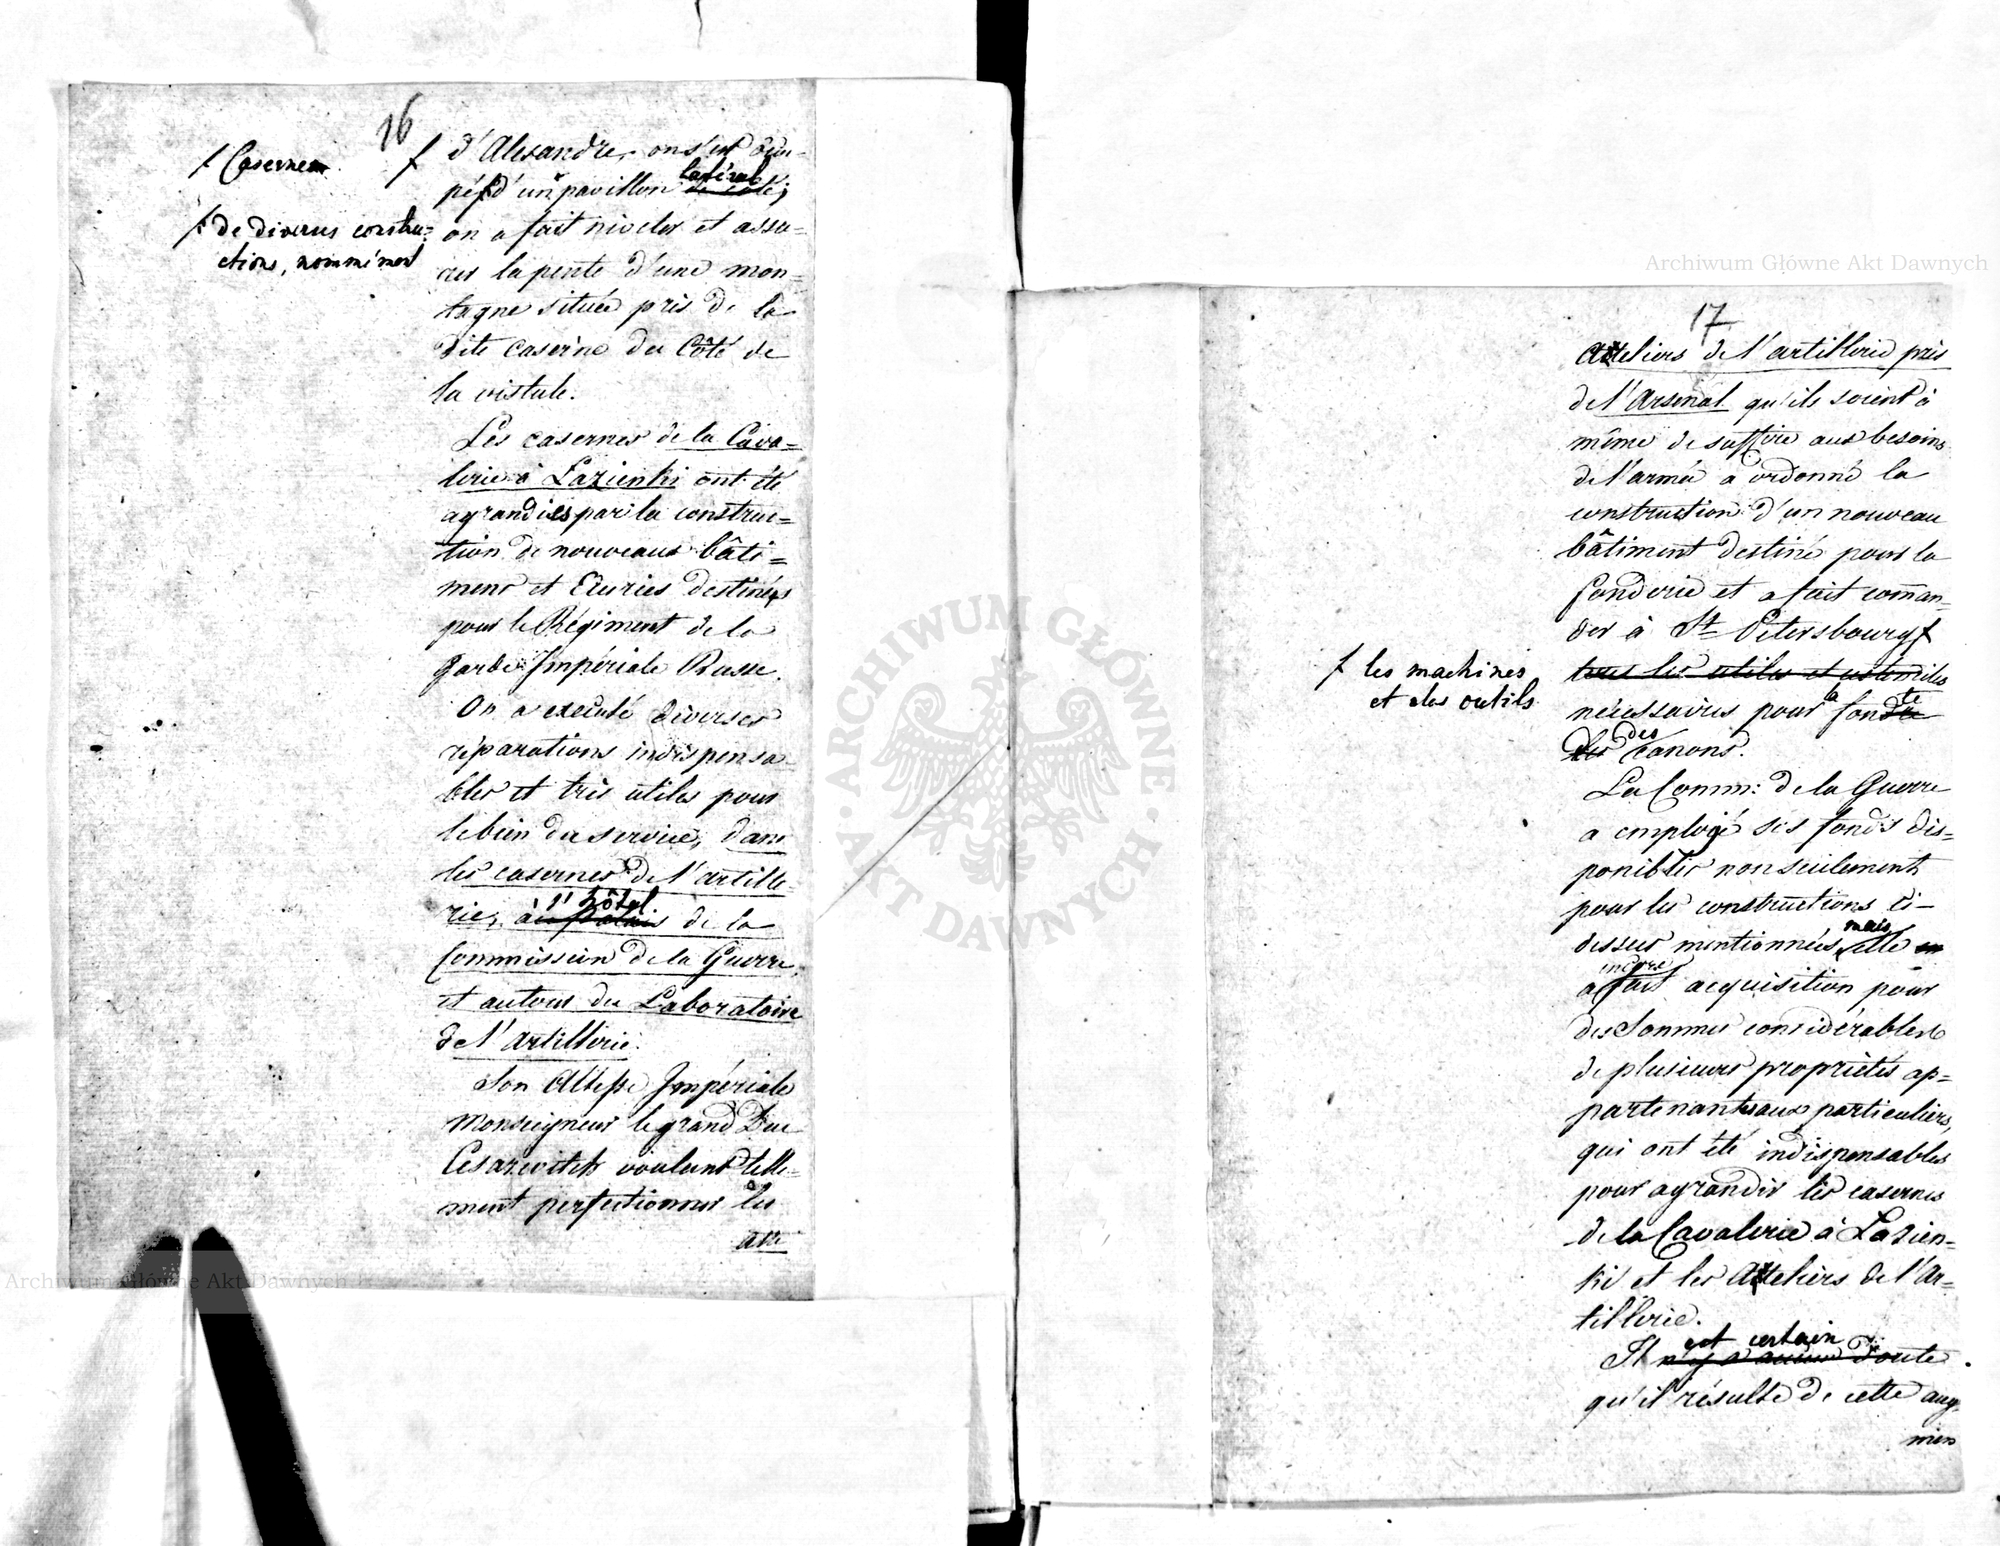 16
ƒ Casernem
ƒ de diverses constru-
ctions, nommément
ƒ d'Alexandre, on s'est occu-
pé ƒ d'un pavillon latéral de côté;
on a fait niveler et assu-
rer la pente d'une mon-
tagne située près de la
dite caserne du Côté de
la vistule.
Les casernes de la Cava-
lerie à Lazienki ont été
agrandies par la construc-
tion de nouveaux bâti-
mens et Ecuries destinées
pour le Régiment de la
garde Impériale Russe.
On a executé diverses
réparations indispensa-
bles et très utiles pour
le bien du service, dans
les casernes de l'artille-
rie, à l'hôtel au Palais de la
Commission de la Guerre,
et autour du Laboratoire
de l'Artillerie.
Son Altesse Impériale
Monseigneur le grand Duc
Cesarewitch voulant telle-
ment perfectionner les
atte
17
Atteliers de l'artillerie près
de l'Arsenal qu'ils soient à
même de suffire aux besoins
de l'armée a ordonné la
construction d'un nouveau
bâtiment destiné pour la
fonderie et a fait coman-
der à St Petersbourg ƒ
tous les utiles et ustensiles
ƒ les machines
et les outils
nécessaires pour la fonte
des canons.
La Comm: de la Guerre
a employé ses fonds dis-
ponibles non seulement
pour les constructions ci-
dessus mentionnées, mais elle en
a encore fait acquisition pour
des Sommes considérables
de plusieurs propriétés ap-
partenantes aux particuliers,
qui ont été indispensables
pour agrandir les casernes
de la Cavalerie à Lazien-
ki et les Atteliers de l'Ar-
tillerie.
Il est certain n'y a aucun doute
qu'il résulte de cette aug-
men
Archiwum Główne Akt Dawnych
Archiwum Główne Akt Dawnych
ARCHIWUM GŁÓWNE · AKT DAWNYCH ·